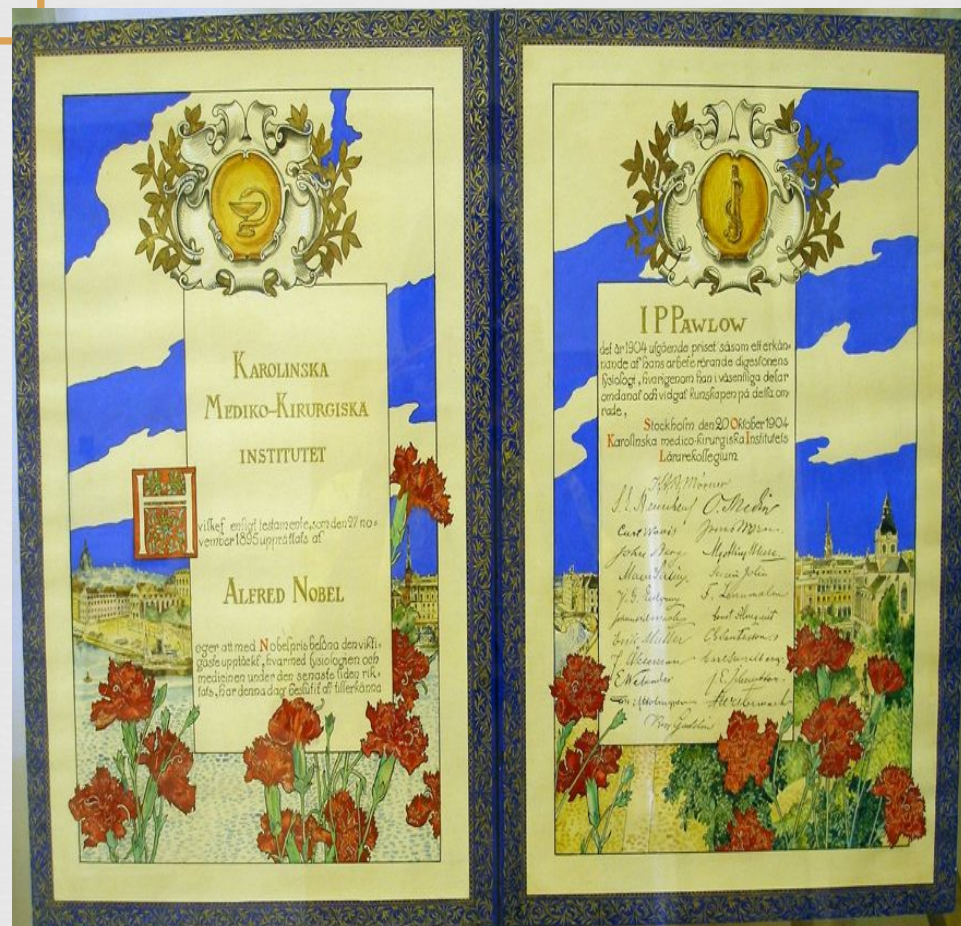 KAROLINSKA
MEDIKO-KIRURGISKA
INSTITUTET
Hvilket enligt testamente, som den 27 no-
vember 1895 upprättats af
ALFRED NOBEL
eger att med Nobelpris belöna den vikti-
gaste upptäckt, hvarmed fysiologien och
medicinen under den senaste tiden rik-
tats, har denna dag beslutit att tillerkänna
I P PAWLOW
det år 1904 utgående priset såsom ett erkän-
nande af hans arbete rörande digestionens
fysiologi, hvarigenom han i väsentliga delar
omdanat och vidgat kunskapen på detta om-
råde,
Stockholm den 20 Oktober 1904
Karolinska medico-kirurgiska Institutets
Lärarekollegium
Mörner
O. Medin
Curt Wallis
John Berg
Erik Müller
J Åkerman Carl Sundberg
E Welander